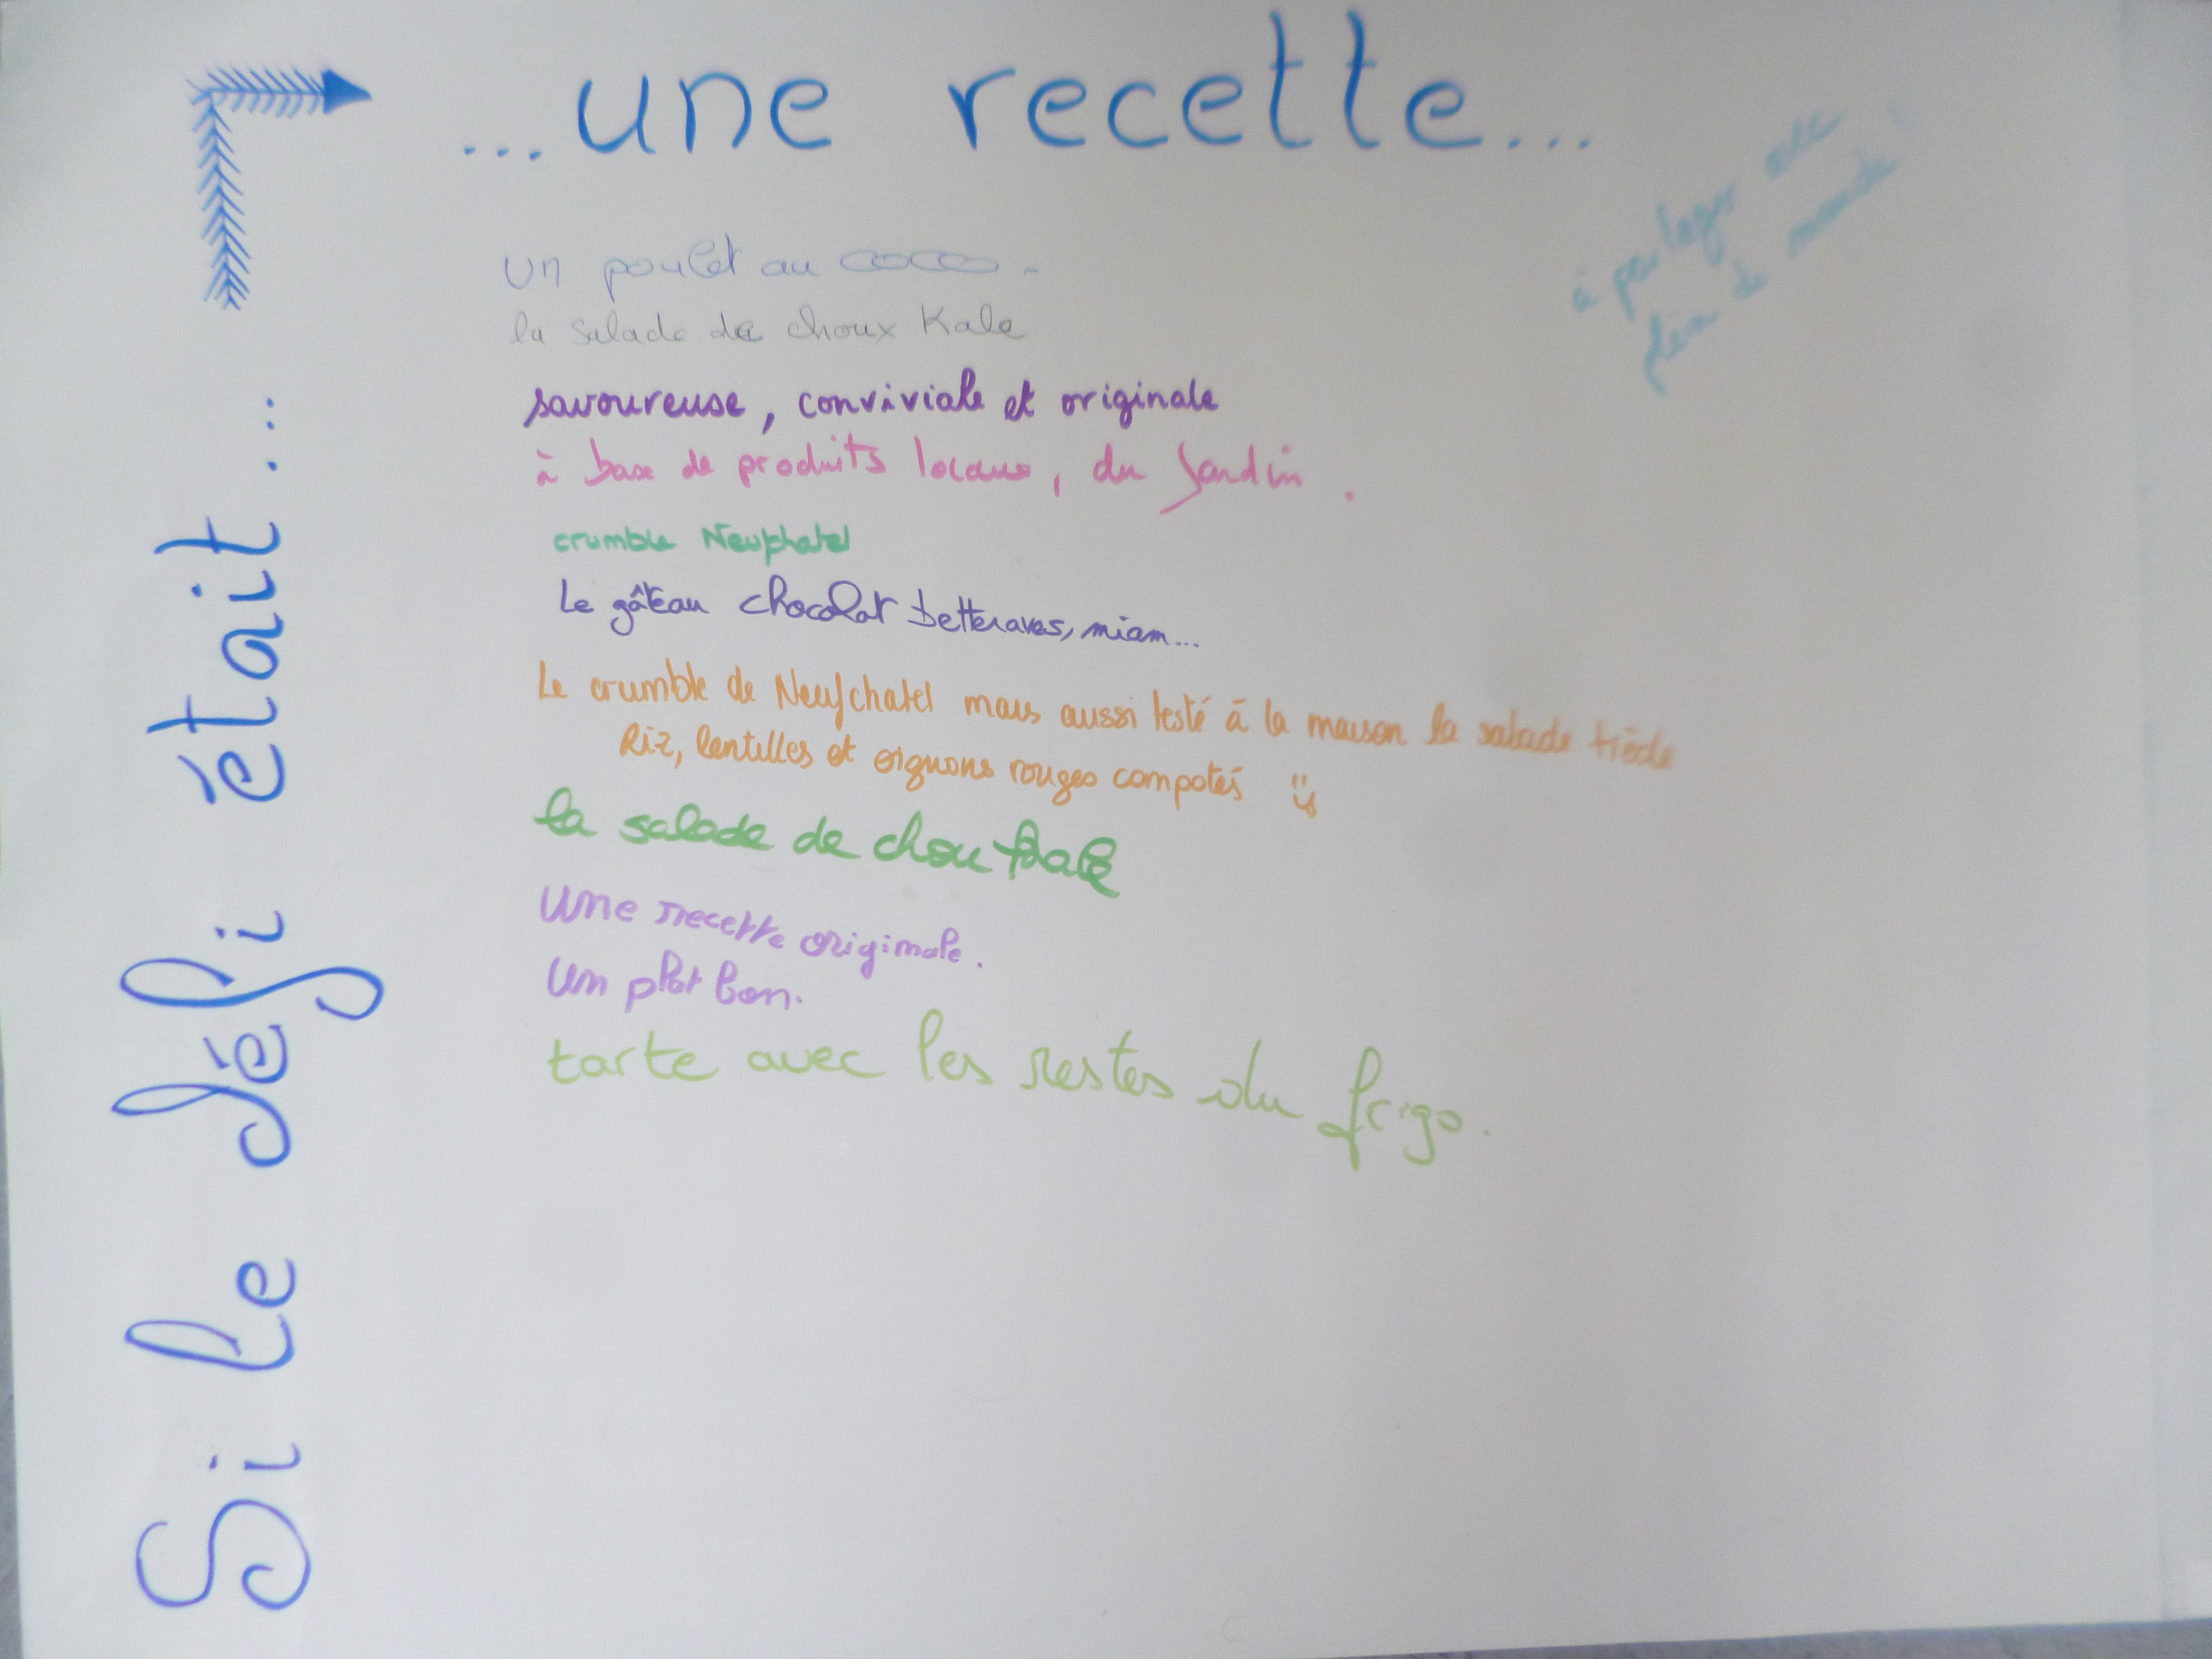 Si le défi était...
...une recette...
à partager avec
plein de monde !
un poulet au coco.
la salade de choux Kale
savoureuse, conviviale et originale
à base de produits locaux, du Jardin.
crumble Neufchatel
Le gâteau chocolat betteraves, miam...
Le crumble de Neufchatel mais aussi testé à la maison la salade tiède
Riz, lentilles et oignons rouges compotés
la salade de chou kale
une recette originale.
un plat bon.
tarte avec les restes du frigo.